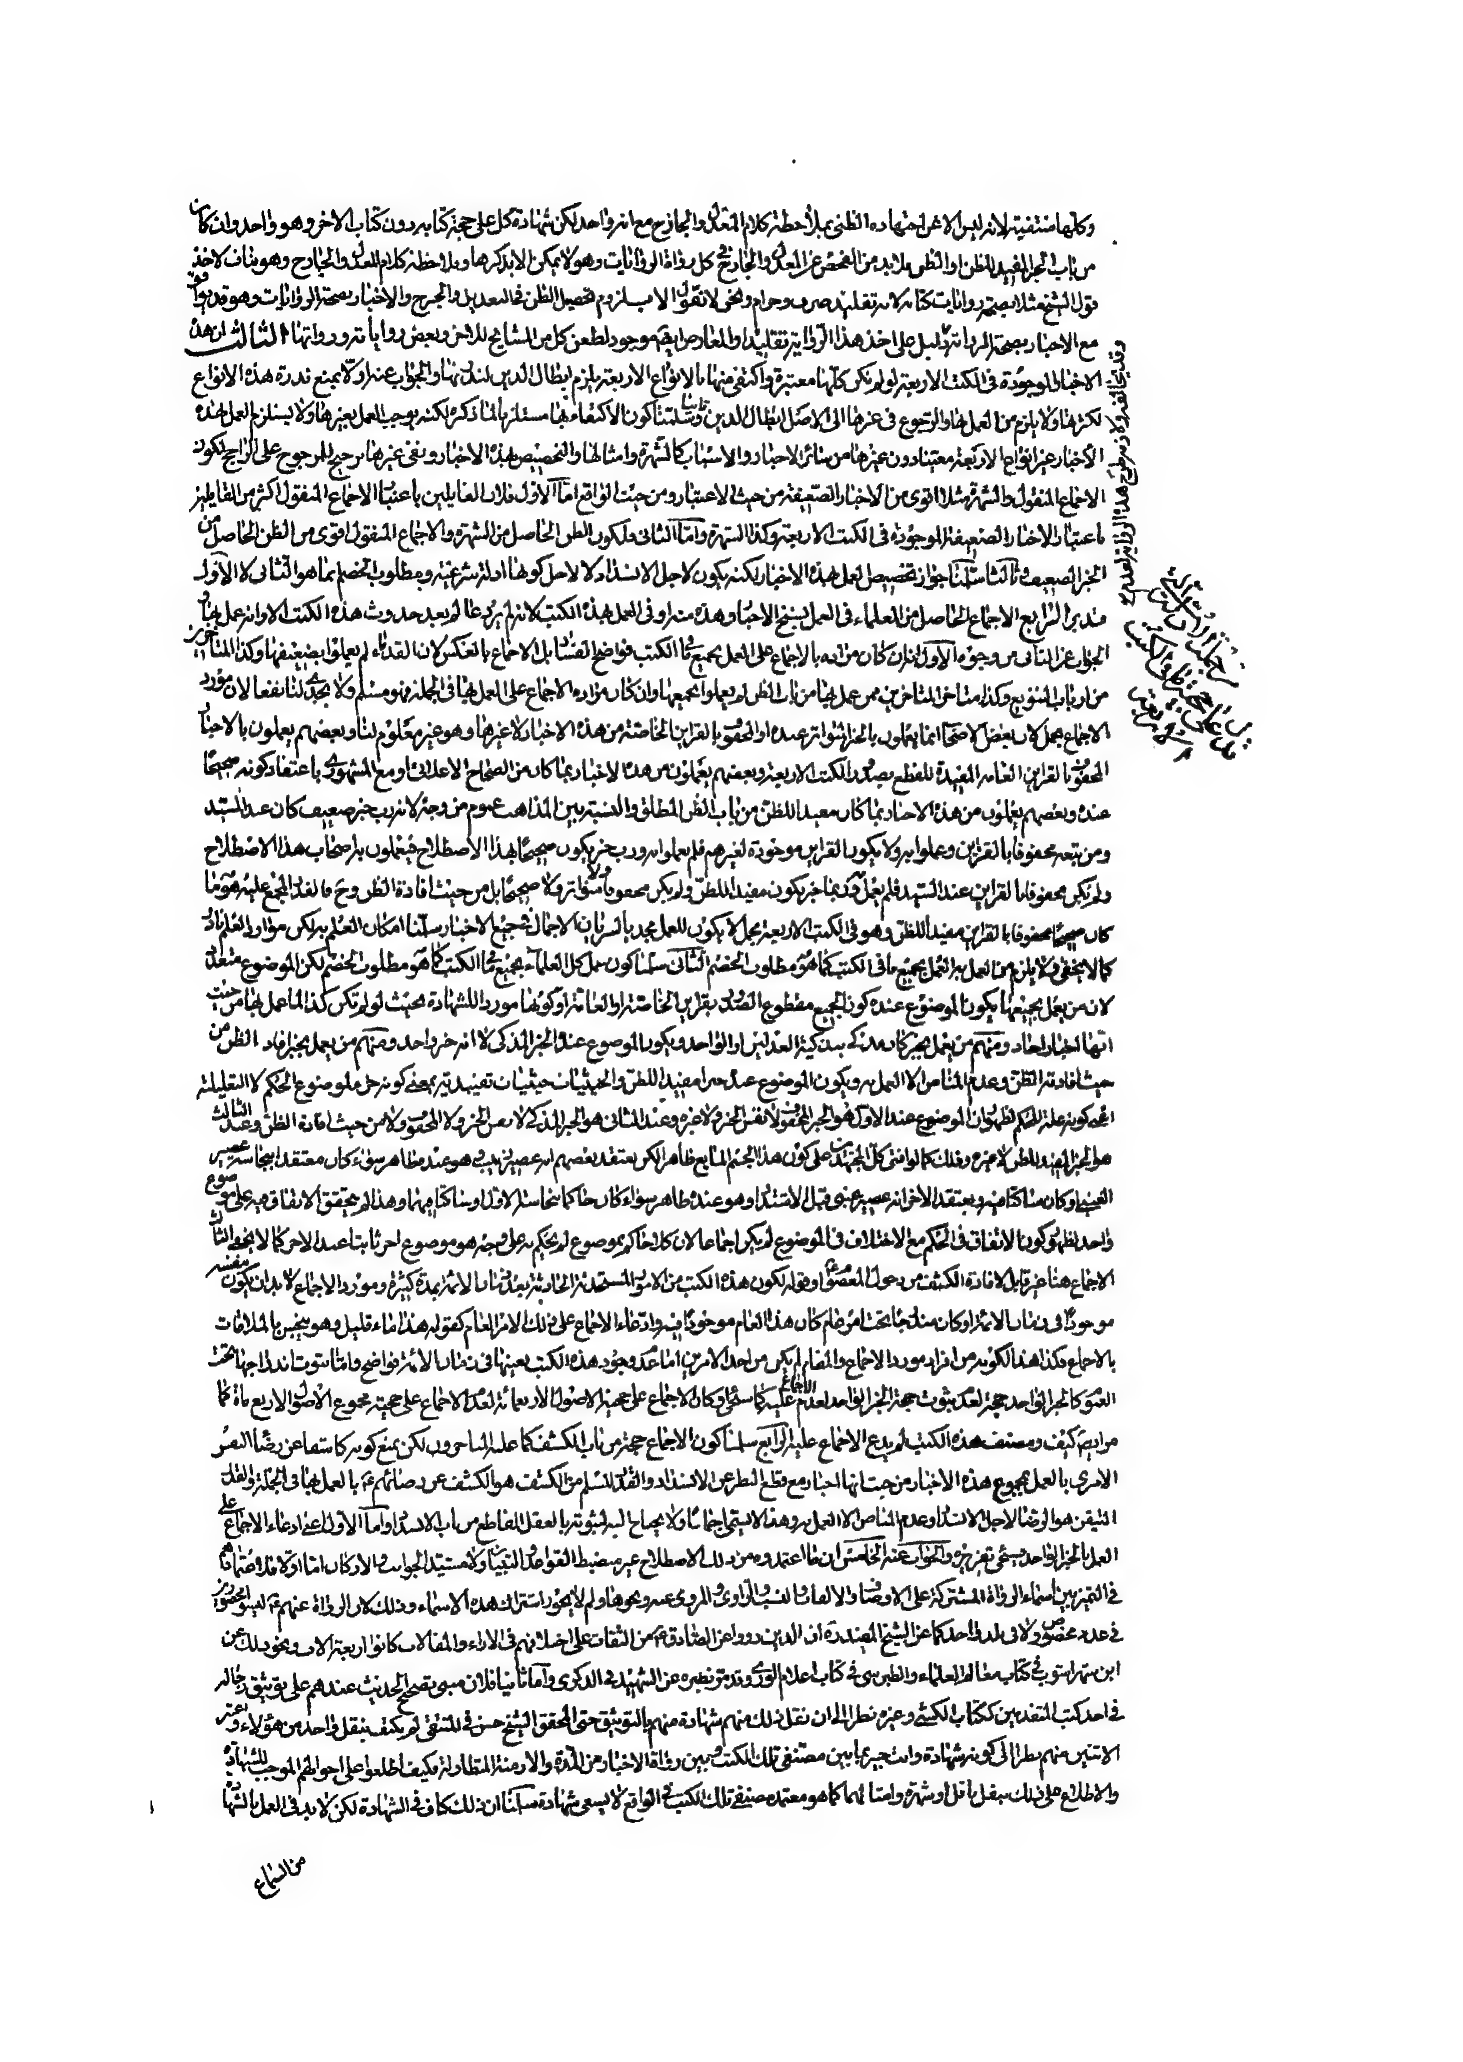 وكلها منتفية لانه ليس الا عن اجتهاده الظنى بملاحظة كلام المعدل والجارح مع انه واحد لكن شهادة كل على حجية كتابه دون كتاب الاخر وهو واحد وان كان
من باب الخبر المفيد للظن او الظن فلا بد من الفحص عن المعدل والجارح فى كل رواة الروايات وهو لا يمكن الا بذكرها وملاحظة كلام المعدل والجارح وهو مناف لاخذ
قول الشيخ مثلا بصحة روايات كتابه لانه تقليد صرف وحرام ولا يخفى لا نقول الا بلزوم تحصيل الظن فى التعديل والجرح والاخبار بصحة الروايات وهو قد
مع الاخبار بصحة دليل على اخذ هذا الرواية تقليدا والمعارض ايضا موجود لطعن كل من المشايخ للاخر وبعض رواياته ورواتها الثالث ان هذه
الاخبار الموجودة فى الكتب الاربعة لو لم تكن كلها معتبرة واكتفى منها بالانواع الاربعة يلزم ابطال الدين لندرتها والجواب عنه اولا بمنع ندرة هذه الانواع
لكثرتها ولا يلزم من العمل بها والرجوع فى غيرها الى الاصل ابطال الدين وثانيا سلمنا كون الاكتفاء بها مستلزما لما ذكره لكنه يوجب العمل بغيرها ولا يستلزم العمل بهذه
الاخبار غير انواع الاربعة معينا دون غيرها من سائر الاخبار والاسباب كالشهرة وامثالها والتخصيص بهذه الاخبار ونفى غيرها ترجيح المرجوح على الراجح لكون
الاجماع المنقول والشهرة مثلا اقوى من الاخبار الضعيفة من حيث الاعتبار ومن حيث الواقع اما الاول فلان القايلين باعتبار الاجماع المنقول اكثر من القايلين
باعتبار الاخبار الضعيفة الموجودة فى الكتب الاربعة وكذا الشهرة واما الثانى فلكون الظن الحاصل من الشهرة والاجماع المنقول اقوى من الظن الحاصل من
الخبر الضعيف وثالثا سلمنا جواز تخصيص العمل بهذه الاخبار لكنه يكون لاجل الانسداد لا لاجل كونها ادلة شرعية ومطلوب الخصم انما هو الثانى لا الاول
فتدبر الرابع الاجماع الحاصل من العلماء فى العمل بنسخ الاخبار وهذه منه او فى العمل بهذه الكتب لانه لم ير عالم بعد حدوث هذه الكتب الا وانه عمل بها و
الجواب عن الثانى من وجوه الاول انه ان كان مراده بالاجماع على العمل بجميع ما فى الكتب فواضح الفساد بل الاجماع بالعكس لان القدماء لم يعملوا بضعيفها وكذا المتاخرين
من ارباب التنويع وكذا متاخر المتاخرين ممن عمل بها من باب الظن لم يعملوا بجميعها وان كان مراده الاجماع على العمل بها فى الجملة فهو مسلم ولا يجدى لنا نفعا لان مورد
الاجماع مجمل لان بعض الاصحاب انما يعملون بالخبر المتواتر عنده او المحفوف بالقراين الخاصة من هذه الاخبار لا غيرها وهو غير معلوم لنا وبعضهم يعملون بالاخبار
المحفوف بالقراين العامة المفيدة للقطع بصدور الكتب الاربعة وبعضهم يعملون من هذه الاخبار بما كان من الصحاح الاعلائى او مع المشهورى باعتقاد كونه صحيحا
عنده وبعضهم يعملون من هذه الاخبار بما كان مفيدا للظن من باب الظن المطلق والنسبة بين المذاهب عموم من وجه لانه رب خبر ضعيف كان عند السيد
ومن تبعه محفوفا بالقراين وعملوا به ولا يكون القراين موجودة لغيرهم فلم يعملوا به ورب خبر يكون صحيحا بهذا الاصطلاح فيعملون به اصحاب هذا الاصطلاح
ولم يكن محفوفا بالقراين عند السيد فلم يعمل وربما خبر يكون مفيدا للظن ولم يكن محفوفا ولا متواتر ولا صحيحا بل من حيث افادة الظن وح فالقدر المجمع عليه هو ما
كان صحيحا محفوفا بالقراين مفيدا للظن وهو فى الكتب الاربعة مجمل لا يكون للعمل مجد بالسريان الاجمال فى جميع الاخبار سلمنا امكان العلم به لكن موارد العلم نادر
كما لا يخفى ولا يلزم من العمل به العمل بجميع ما فى الكتب كما هو مطلوب الخصم الثانى سلمنا كون عمل كل العلماء بجميع ما فى الكتب كما هو مطلوب الخصم لكن الموضوع متعدد
لان من يعمل بجميعها يكون الموضوع عنده كون الجميع مقطوع الصدور بقراين الخاصة او العامة او كونها موردا للشهادة بحيث لو لم تكن كذا لما عمل بها من حيث
انها اخبار احاد ومنهم من يعمل بخبر كان مذكى بتذكية العدلين او الواحد ويكون الموضوع عنده الخبر المذكى لا انه خبر واحد ومنهم من يعمل بخبر افاد الظن من
حيث افادته الظن وعدم المناص الا العمل به ويكون الموضوع عنده خبرا مفيدا للظن والحيثيات حيثيات تقييدية بمعنى كونه جزء لموضوع الحكم لا التعليلية
اى كونه علة للحكم لظهور ان الموضوع عند الاول هو الخبر المحفوف لا نفس الخبر ولا غيره وعند الثانى هو الخبر المذكى لا نفس الخبر ولا المحفوف ولا من حيث افادة الظن وعند الثالث
هو الخبر المفيد للظن لا غيره وذلك كما لو افتى كل المجتهدين على كون هذا الجسم المايع ظاهرا لكن يعتقد بعضهم انه عصير زبيب وهو عنده طاهر سواء كان معتقدا بنجاسة عصير
العنبى او كان ساكتا فيه ويعتقد الاخر انه عصير عنبى قبل الاشتداد وهو عنده طاهر سواء كان حاكما بنجاسة الاول او ساكتا فيهما وهذا لم يتحقق الاتفاق فيه على موضوع
واحد لظهور كون الاتفاق فى الحكم مع الاختلاف فى الموضوع لم يكن اجماعا لان كل حاكم بموضوع لم يحكم به على وجه هو موضوع اخر ثابتا عند الاخر كما لا يخفى الثالث
الاجماع هنا غير قابل لافادة الكشف من دخول المعصوم او قوله لكون هذه الكتب من الامور المستحدثة الحادثة بعد زمان الائمة بمدة كثيرة ومورد الاجماع لابد ان يكون بنفسه
موجودا فى زمان الائمة او كان مندرجا تحت امر عام كان هذا العام موجودا فيه وادعاء الاجماع على ذلك الامر العام كقوله هذا الماء قليل وهو ينجس بالملاقات
بالاجماع فكذا هذا لكونه من افراد مورد الاجماع والمقام لم يكن من احد الامرين اما عدم وجود هذه الكتب بعينها فى زمان الائمة فواضح واما ثبوت اندراجها تحت
العموم كالخبر الواحد حجة لعدم ثبوت حجية الخبر الواحد لعدم الاجماع عليه كما سيجئ وكان الاجماع على حجية الاصول الاربعمائة لعدم الاجماع على حجية مجموع الاصول الاربع ماة كما
مر ايضا كيف ومصنف هذه الكتب لم يدع الاجماع عليه الرابع سلمنا كون الاجماع حجة من باب الكشف كما عليه المتاخرون لكن يمنع كونه كاشفا عن رضاء النفس
الامرى بالعمل بمجموع هذه الاخبار من حيث انها اخبار مع قطع النظر عن الانسداد والقدر المسلم من الكشف هو الكشف عن رضائهم ع بالعمل بها فى الجملة والقدر
المتيقن هو الرضا لاجل الانسداد وعدم المناص الا العمل به وهذا لا يسمى اجماعا ولا يحتاج اليه لثبوته بالعقل القاطع من باب الانسداد واما الاول اعنى ادعاء الاجماع على
العمل بالخبر الواحد فسيجئ تقريره والجواب عنه الخامس ان ما اعتمدوه من ذلك الاصطلاح غير منضبط القواعد والبنيان ولا مستند الجوانب والاركان اما اولا فلاعتمادهم
فى التميز بين اسماء الرواة المشتركة على الاوصاف والالقاب والنسب والراوى والمروى عنه ونحوها ولم لا يجوز اشتراك هذه الاسماء وذلك لان الرواة عنهم ع ليسوا محصورين
فى عدد مخصوص ولا فى بلد واحد كما عن الشيخ المفيد ره ان الذين رووا عن الصادق ع من الثقات على اختلافهم فى الاراء والمقالات كانوا اربعة الاف ونحو ذلك عن
ابن شهراشوب فى كتاب معالم العلماء والطبرسى فى كتاب اعلام الورى وقد مر نظيره عن الشهيد فى الذكرى واما ثانيا فلان مبنى تصحيح الحديث عندهم على توثيق رجاله
فى احد كتب المتقدمين ككتاب الكشى وغيره نظرا الى ان نقل ذلك منهم شهادة منهم بالتوثيق حتى المحقق الشيخ حسن فى المنتقى لم يكتف بنقل واحد من هؤلاء واعتبر
الاثنين منهم نظرا الى كونه شهادة وانت خبير بما بين مصنفى تلك الكتب وبين رواة الاخبار من المدة والازمنة المتطاولة فكيف اطلعوا على احوالهم الموجب للشهادة
والاطلاع على ذلك بنقل ناقل او شهرة وامثالهما كما هو معتمد مصنفى تلك الكتب فى الواقع لا يسمى شهادة سلمنا ان ذلك كاف فى الشهادة لكن لا بد فى العمل بالشهادة
من السماع